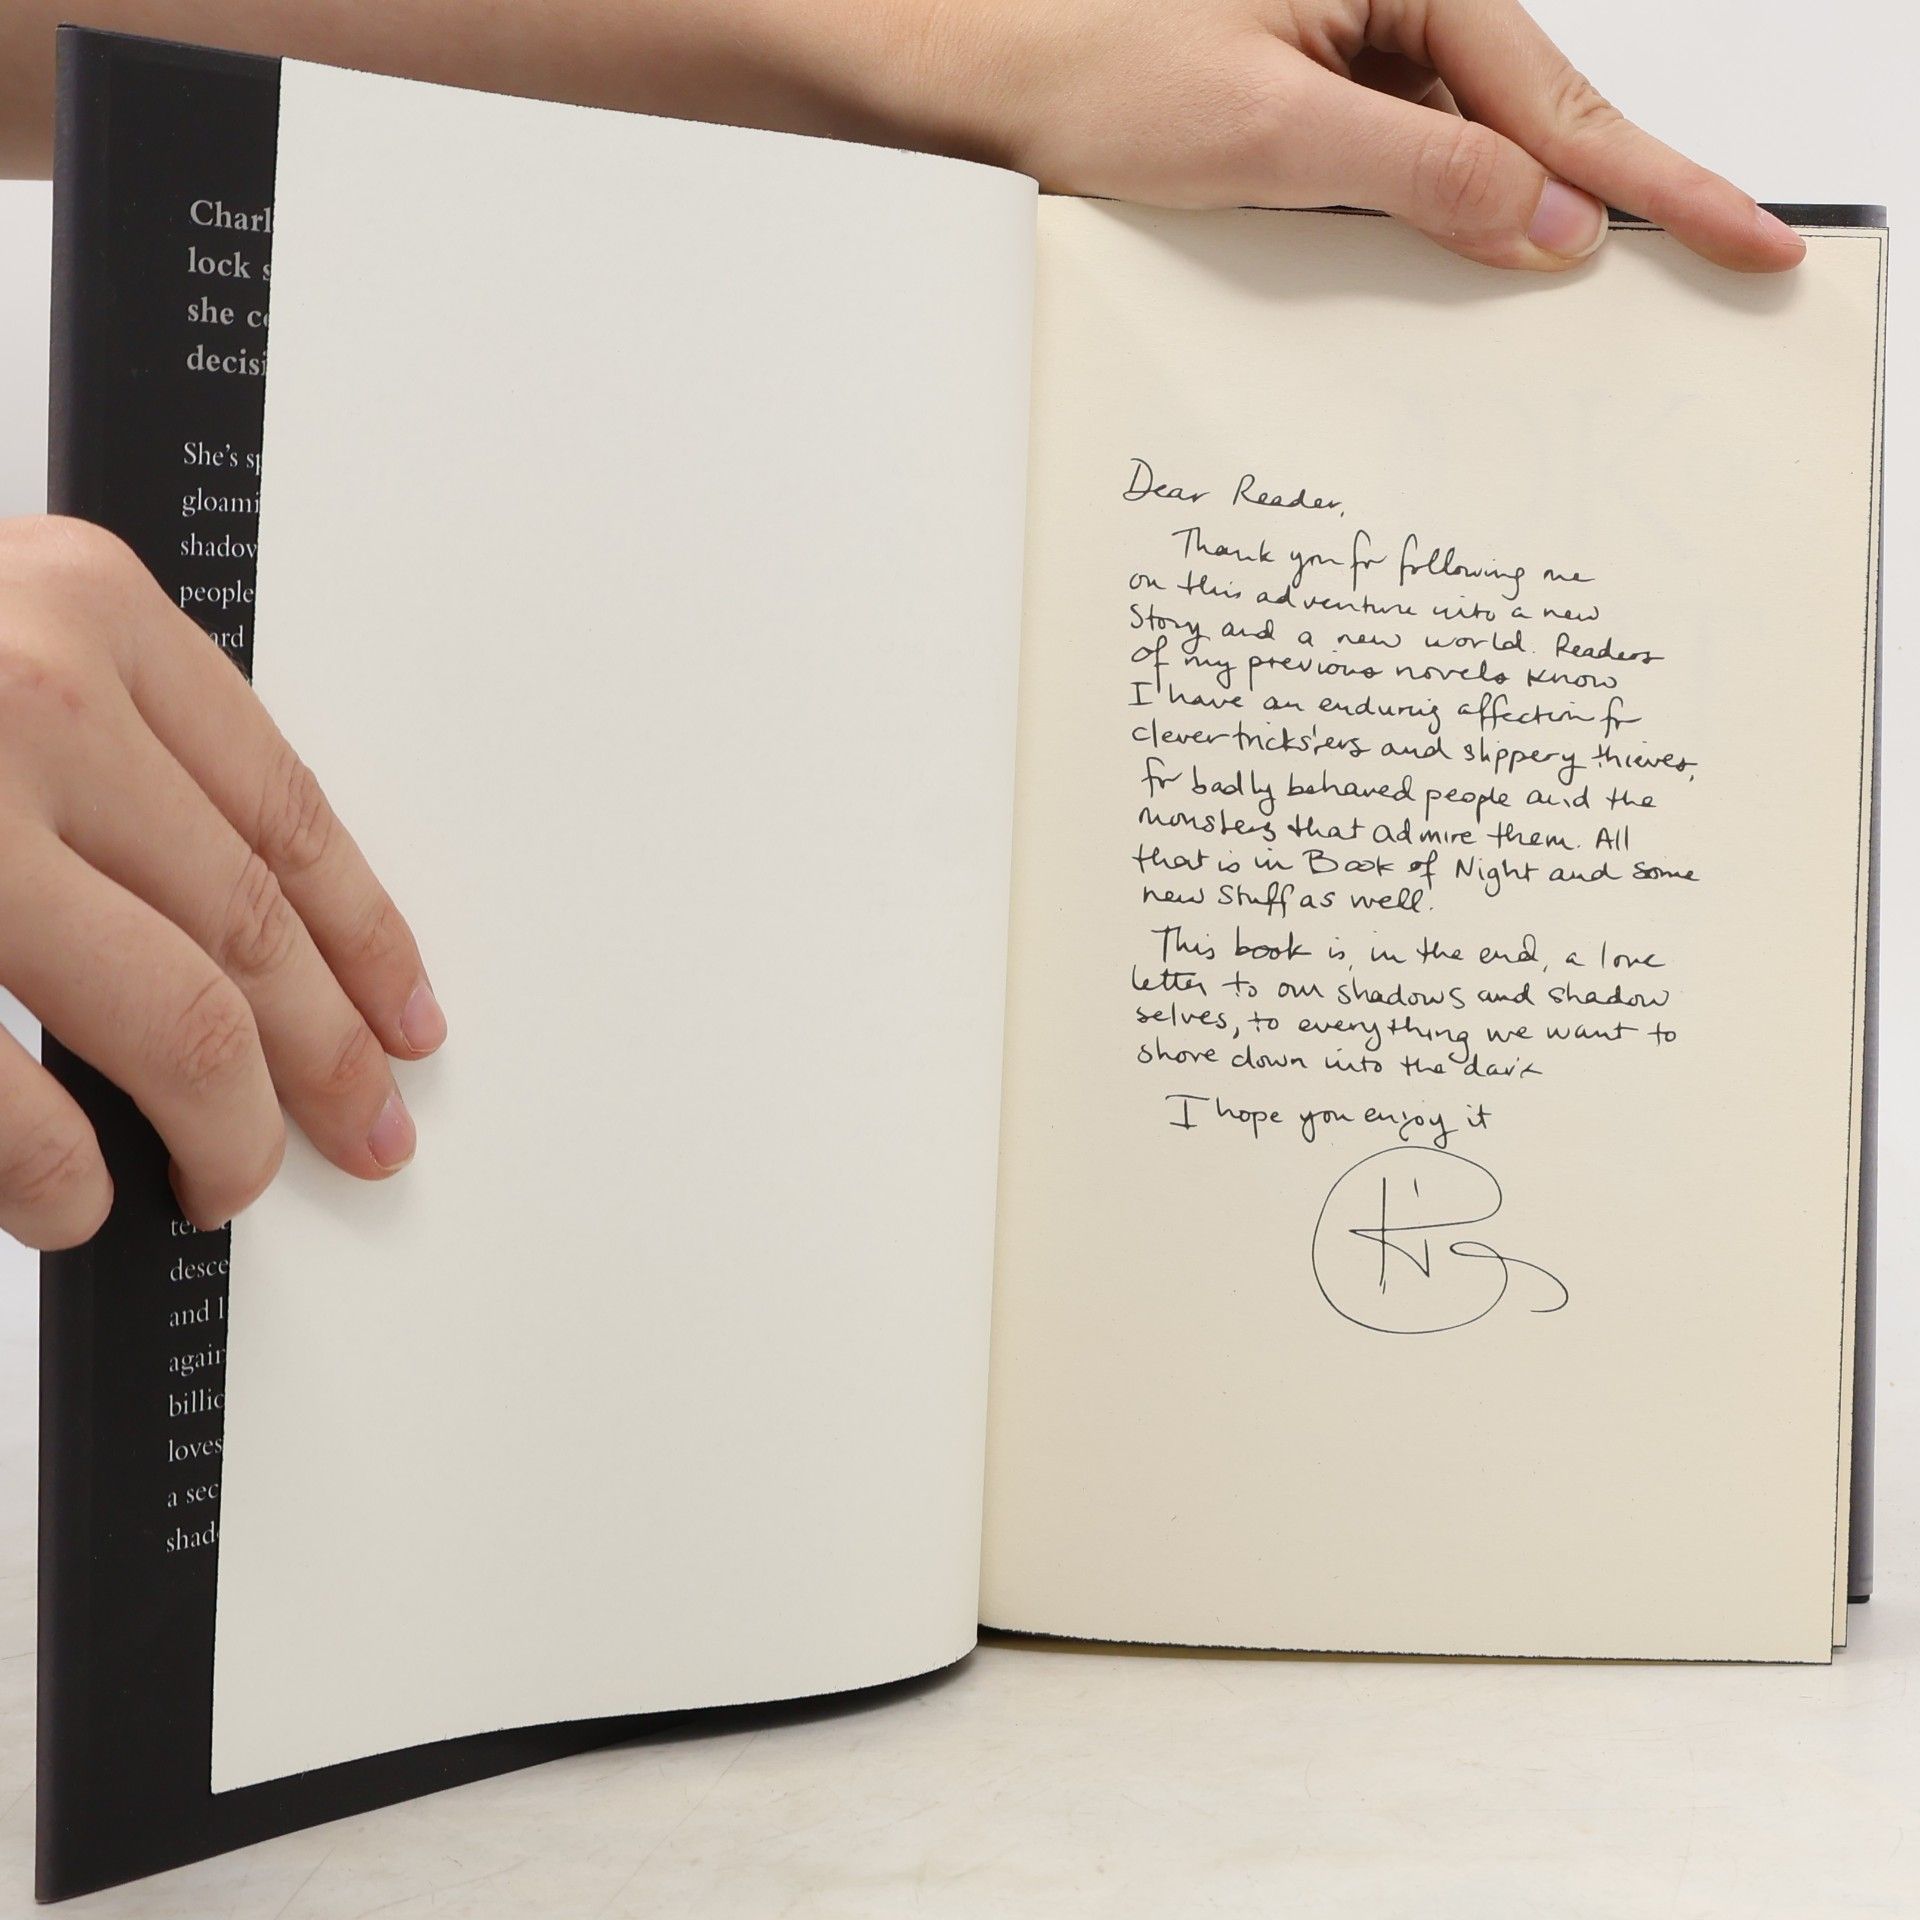 Charl
lock s
she co
decisi
She's sp
gloami
shadow
people
ard
desce
and l
again
billic
loves
a sec
shad
Dear Reader,
Thank you for following me
on this adventure into a new
story and a new world. Readers
of my previous novels know
I have an enduring affection for
clever tricksters and slippery thieves,
for badly behaved people and the
monsters that admire them. All
that is in Book of Night and some
new stuff as well.
This book is, in the end, a love
letter to our shadows and shadow
selves, to everything we want to
shove down into the dark
I hope you enjoy it